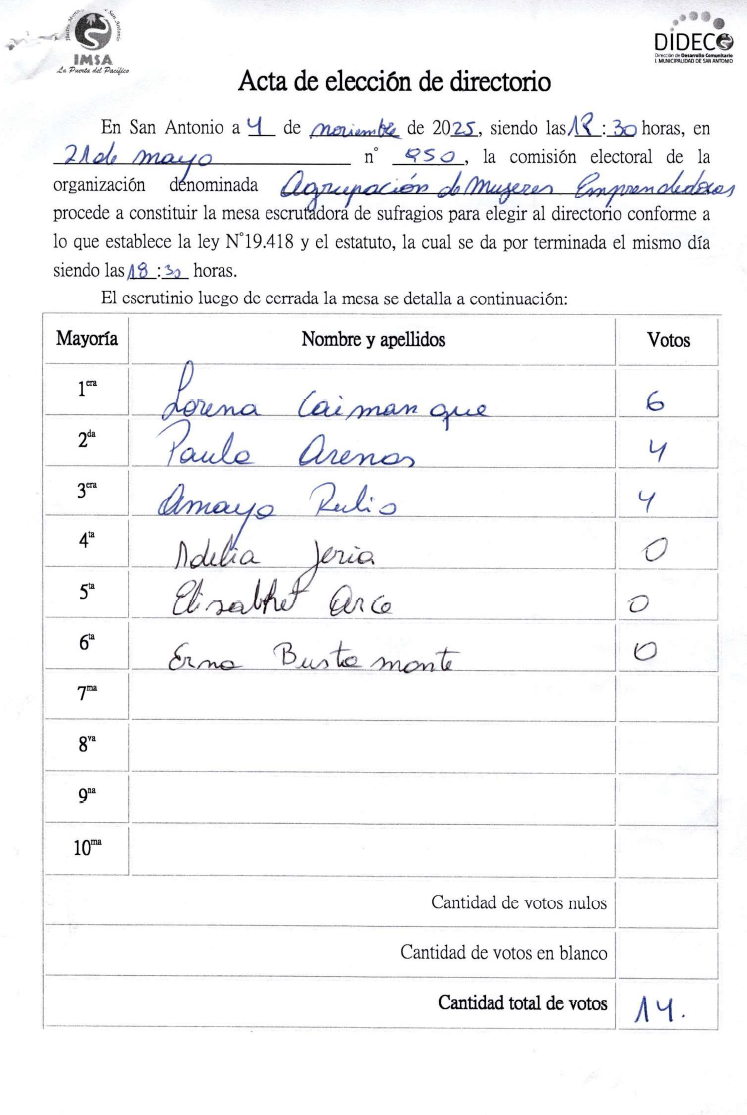 IMSA
La Puerta del Pacífico
DIDECO
Dirección de Desarrollo Comunitario
I. MUNICIPALIDAD DE SAN ANTONIO
Acta de elección de directorio
En San Antonio a 4 de noviembre de 2025, siendo las :30 horas, en
21 de mayo n° 950, la comisión electoral de la
organización denominada Agrupación de Mujeres Emprendedoras
procede a constituir la mesa escrutadora de sufragios para elegir al directorio conforme a
lo que establece la ley N°19.418 y el estatuto, la cual se da por terminada el mismo día
siendo las 18:30 horas.
El escrutinio luego de cerrada la mesa se detalla a continuación:
Mayoría Nombre y apellidos Votos
1era Lorena Caimanque 6
2da Paula Arenas 4
3era Amaya Rubio 4
4ta Adelia Jeria 0
5ta Elisabhet Arce 0
6ta Erna Bustamante 0
7ma
8va
9na
10ma
Cantidad de votos nulos
Cantidad de votos en blanco
Cantidad total de votos 14.